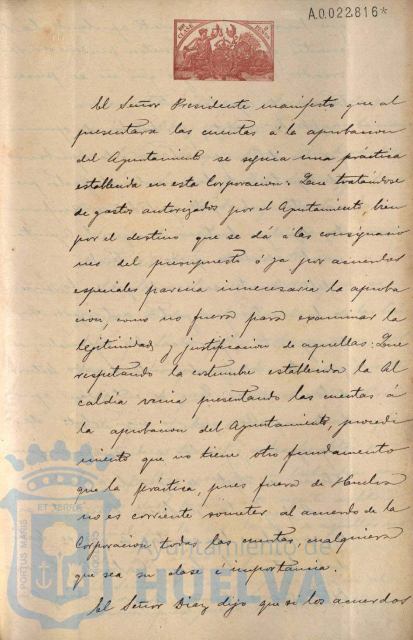 A.0.022.816*
El Señor Presidente manifestó que al
presentarse las cuentas á la aprobacion
del Ayuntamiento se seguia una práctica
establecida en esta Corporacion: Que tratándose
de gastos autorizados por el Ayuntamiento, bien
por el destino que se dá á las consignacio
nes del presupuesto ó ya por acuerdos
especiales parecia innecesaria la aproba
cion, como no fuera para examinar la
legitimidad y justificacion de aquellas: Que
respetando la costumbre establecida la Al
caldía venia presentando las cuentas á
la aprobacion del Ayuntamiento, procedi
miento que no tiene otro fundamento
que la práctica, pues fuera de Huelva
no es corriente someter al acuerdo de la
Corporacion todas las cuentas, cualquiera
que sea su clase é importancia.
El Señor Diaz dijo que si los acuerdos
PORTUS MARIS
ET TERRÆ
Ayuntamiento de
HUELVA